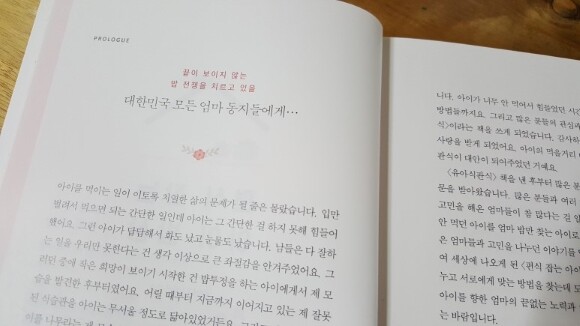 PROLOGUE
끝이 보이지 않는
밥 전쟁을 치르고 있을
대한민국 모든 엄마 동지들에게…
아이를 먹이는 일이 이토록 치열한 삶의 문제가 된 줄은 몰랐습니다. 입만
벌려서 먹으면 되는 간단한 일인데 아이는 그 간단한 걸 하지 못해 힘들어
했어요. 그런 아이가 답답해서 화도 났고 눈물도 났습니다. 남들은 다 잘하
는 일을 우리만 못한다는 건 생각 이상으로 큰 좌절감을 안겨주었어요. 그
러던 중에 작은 희망이 보이기 시작한 건 밥투정을 하는 아이에게서 제 모
습을 발견한 후부터였어요. 어릴 때부터 지금까지 이어지고 있는 제 잘못
된 식습관을 아이는 무서울 정도로 닮아있었거든요.
니다. 아이가 너무 안 먹어서 힘들었던 시간
방법들까지요. 그리고 많은 분들의 관심과
식>이라는 책을 쓰게 되었습니다. 감사하
사랑을 받게 되었어요. 아이의 먹을거리
판식이 대안이 되어주었던 거예요.
<유아식판식> 책을 낸 후부터 많은 분
문을 받아왔습니다. 많은 분들과 여러
고민을 해온 엄마들이 참 많다는 걸 알
안 먹던 아이를 엄마 밥만 찾는 아이로
은 엄마들과 고민을 나누던 이야기를
여 세상에 나오게 된 <편식 잡는 아이
누고 서로에게 맞는 방법을 찾는데 도
아이를 향한 엄마의 끝없는 노력과
는 바람입니다.